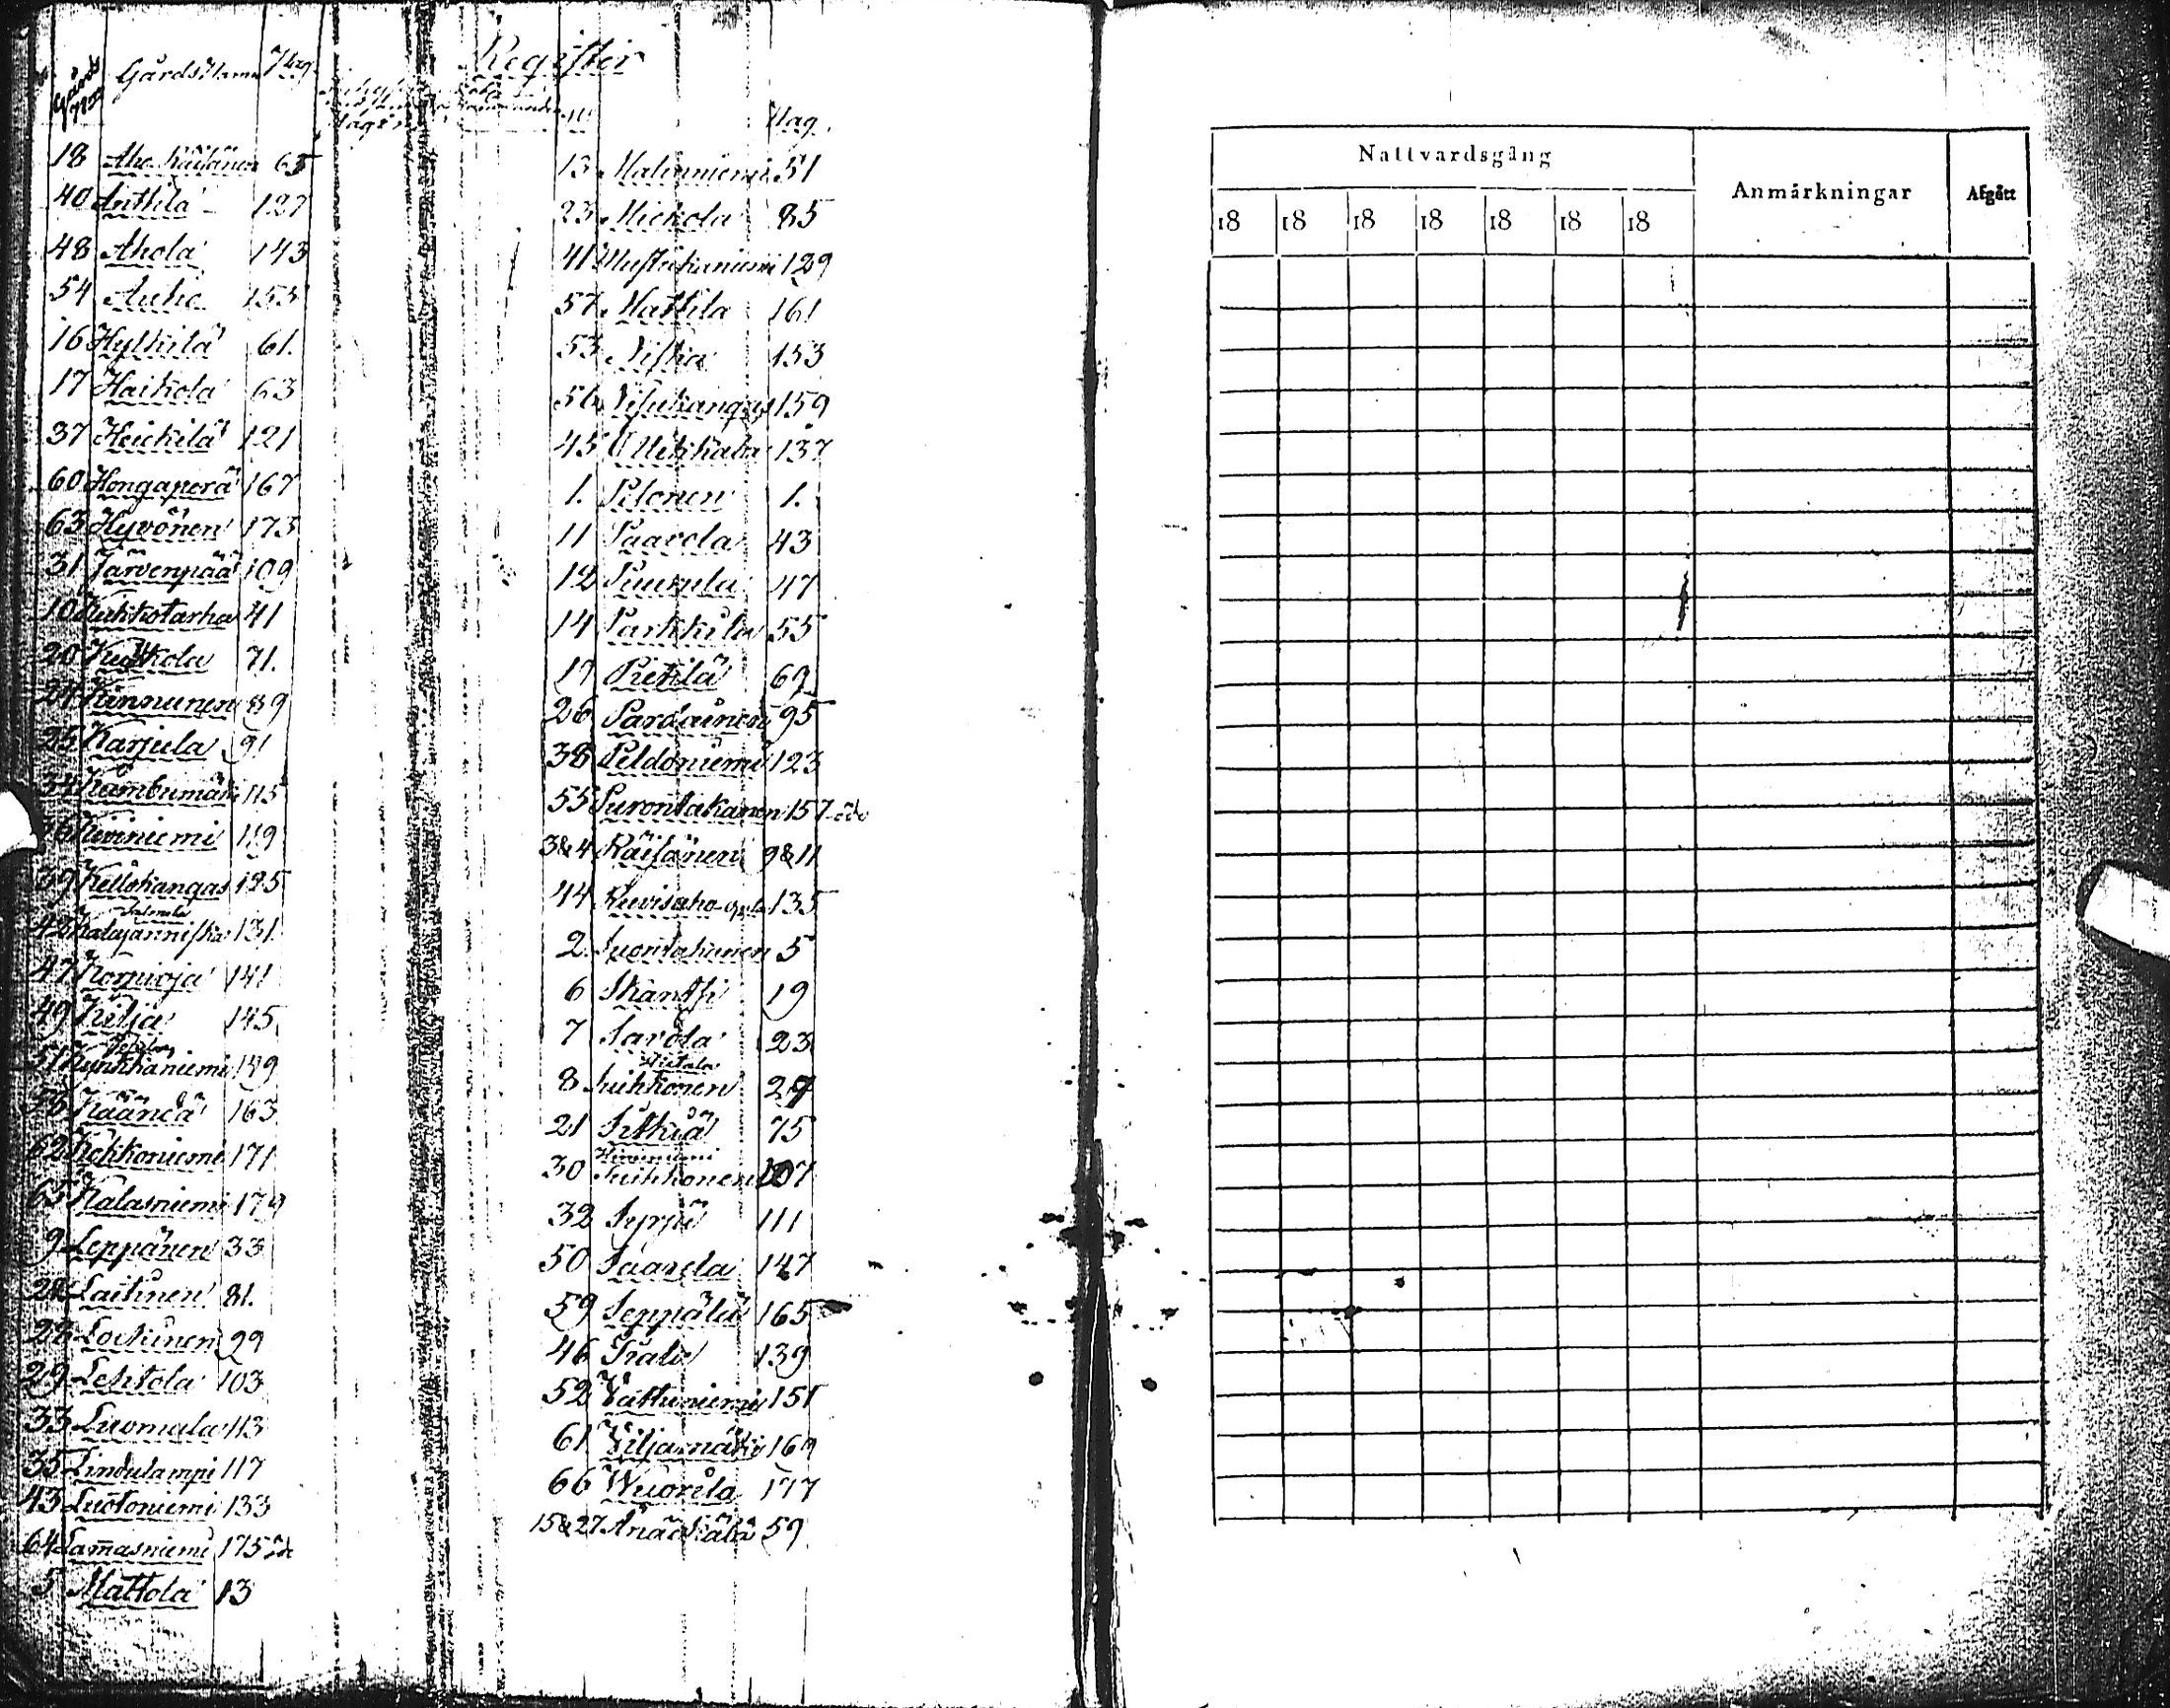 Register
Gårds No Gårds Namn Pag.
18 Aho Räisänen 65
40 Anttila 127
48 Ahola 143
54 Auho 155
16 Hyttilä 61.
17 Haikola 63
37 Heickilä 121
60 Hongaperä 167
63 Hyvönen 173
31 Järvenpää 109
10 Kukkotarha 41
20 Kurkola 71.
24 Kinnunen 89
25 Karjula 91
34 Kambumäki 115
36 Keroniemi 119
39 Kellokangas 125
42 Kalajanniska 131.
47 Kornioja 141
49 Kilja 145
51 Kynkkäniemi 149
58 Kääncä 163
62 Kokkoniemi 171
65 Kalasniemi 179
9 Leppänen 33
22 Laitinen 81.
28 Lockinen 99
29 Lehtola 103
33 Luomala 113
35 Lindulampi 117
43 Luotoniemi 133
64 Lam̄asniemi 175 öde
5 Mattola 13
No Pag.
13 Malinniemi 51
23 Mickola 85
41 Mustikaniemi 129
57 Mattila 161
53 Niska 153
56 Nisukangas 159
45 137
1. Pilonen 1.
11 Paavola 43
12 Puurula 47
14 Parkkila 55
19 Pietilä 69
26 Pardainen 95
38 Peldoniemi 123
55 Purontakanen 157 öde
3&4 Räisänen 9&11
44 Ruvisaho 135
2 Suontakanen 5
6 Skantsi 19
7 Sarola 23
8 Suikkonen 27
21 Sitkiä 75
Hiiriniemi
30 Suikkonen 107
32 Syrjä 111
50 Saarela 147
59 Seppälä 165
46 Trala 139
52 Vattuniemi 151
61 Viljamäki 169
66 Wuorila 177
15&27 Änäckälä 59
Nattvardsgång Anmärkningar Afgått
18 18 18 18 18 18 18